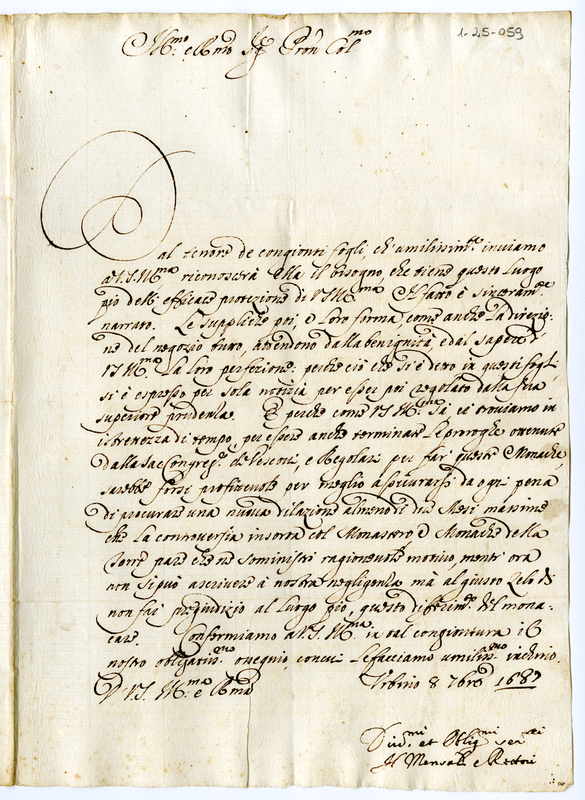 1-25-059
Ill.mo e Rmo Sig Pron Col.mo
Dal tenore de congionti fogli, ch'umilissim.te inviamo
a V.S. Ill.ma riconoscerà Ella il bisogno, che tiene questo luogo
pio dell'efficace protezione di VS Ill.ma Il fatto è sinceram.te
narrato. Le suppliche poi, e loro forma, come anche la direzio-
ne del negozio tutto, attendono dalla benignità, e dal sapere di
VS Ill.ma la loro perfezione: perche ciò che si è detto in questi fogli
si è espresso per sola notizia per esser poi regolato dalla sua
superiore prudenza. E perche come VS Ill.ma sa, ci troviamo in
istrettezza di tempo, per essere anche terminate le proroghe ottenute
dalla Sac Congreg.e de Vescovi, e Regolari per far queste Monache,
sarebbe forsi profittevole per meglio assicurarsi da ogni pena
di procurare una nuova dilazione almeno di due Mesi massime
che la controversia insorta col Monastero e Monache della
Torre pare che ne somministri ragionevole motivo, mentre ora
non si può ascrivere à nostra negligenza ma al giusto zelo di
non far pregiudizio al luogo pio, questo differim.to del mona-
care. Confermiamo a V.S. Ill.ma in tal congiontura il
nostro obligatiss.mo ossequio, con cui le facciamo umiliss.mo inchino.
D V.S. Ill.ma e Rma Urbino 8 7bre 1687
Div.mi et Oblig.mi ser.ri
Il Mensale e Rettori